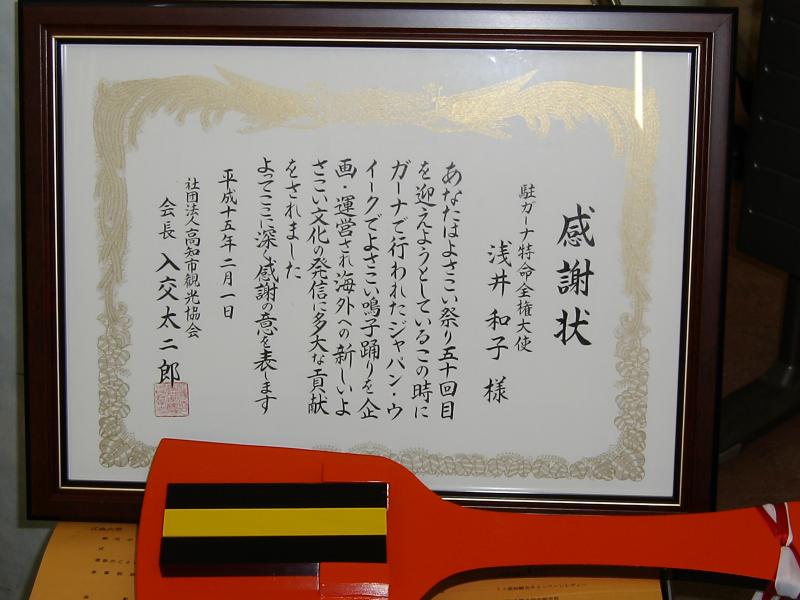 感謝状
駐ガーナ特命全権大使
浅井和子 様
あなたはよさこい祭り五十回目
を迎えようとしているこの時に
ガーナで行われたジャパン・ウ
イークでよさこい鳴子踊りを企
画・運営され海外への新しいよ
さこい文化の発信に多大な貢献
をされました
よってここに深く感謝の意を表します
平成十五年二月一日
社団法人高知市観光協会
会長 入交太二郎